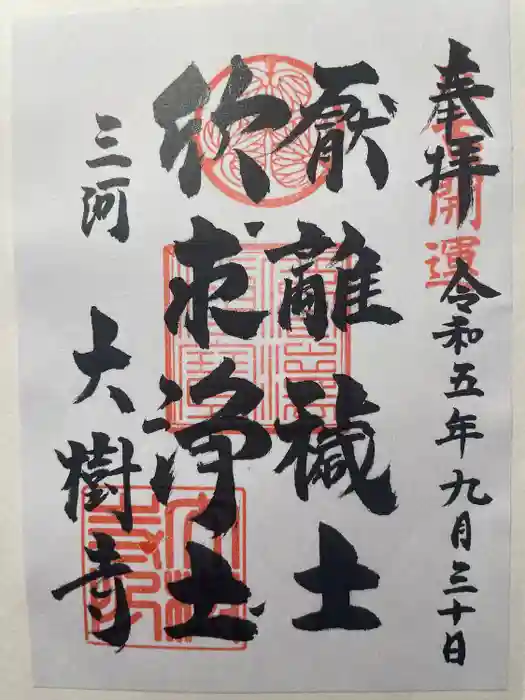 奉拝
開運
令和五年九月三十日
厭離穢土
欣求浄土
三河
大樹寺